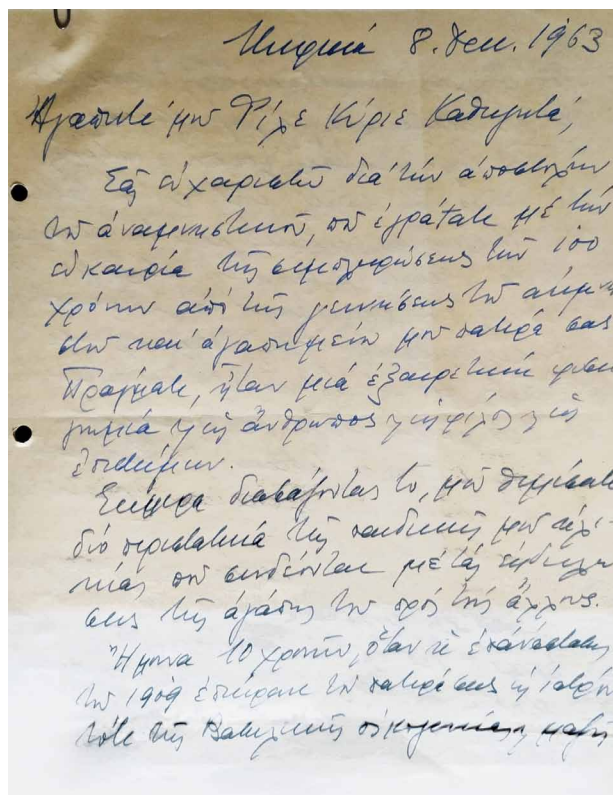 Κηφισιά 8. Δεκ. 1963
Ἀγαπητέ μου Φίλε Κύριε Καθηγητά,
Σᾶς εὐχαριστῶ διά τήν ἀποστολήν
τοῦ ἀναμνηστικοῦ, πού ἐγράψατε μέ τήν
εὐκαιρία τῆς συμπληρώσεως τῶν 100
χρόνων ἀπό τῆς γεννήσεως τοῦ ἀειμνή
στου καί ἀγαπημένου μου πατέρα σας
Πράγματι, ἦταν μιά ἐξαιρετική φυσιο
γνωμία ὡς ἄνθρωπος ὡς φίλος ὡς
ἐπιστήμων.
Σήμερα διαβάζοντας το, μοῦ θυμίσατε
δύο περιστατικά τῆς παιδικῆς μου ἡλι
κίας πού συνδέονται μέ τάς ἐκδηλώ
σεις τῆς ἀγάπης του πρός τούς ἄλλους.
Ἤμουνα 10 χρονῶν, ὅταν ἡ ἐπανάστασις
τοῦ 1909 τοῦ πατέρα σας ἰατρόν
τότε τῆς Βασιλικῆς οἰκογενείας